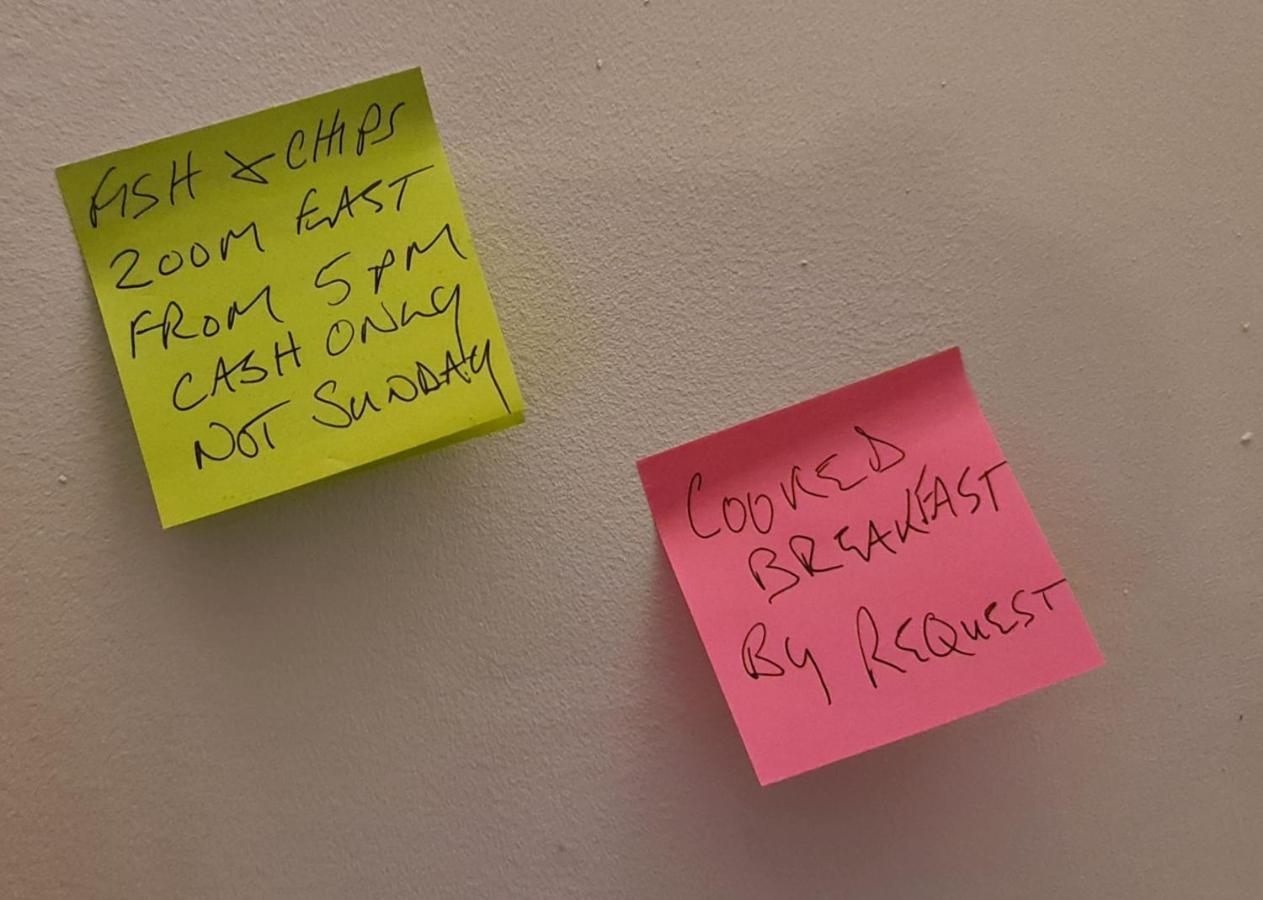 FISH & CHIPS
200M EAST
FROM 5PM
CASH ONLY
NOT SUNDAY
COOKED
BREAKFAST
BY REQUEST